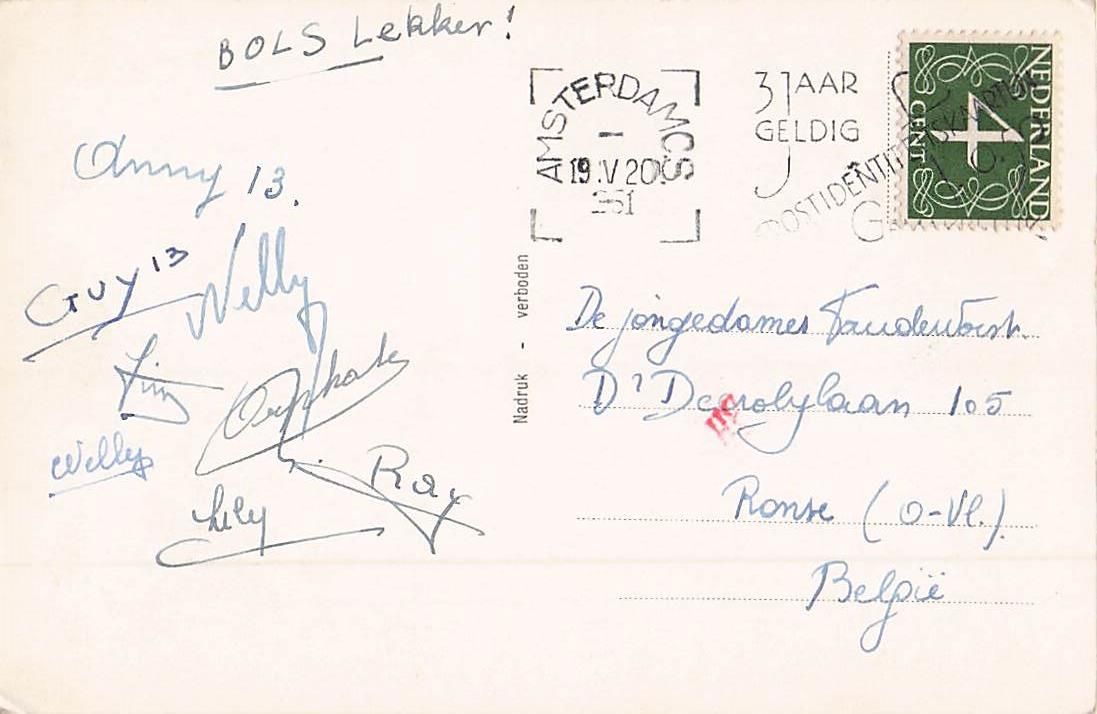 BOLS Lekker!
Anny 13.
GUY 13
Nelly
Willy
Lily
Ray
Nadruk - verboden
AMSTERDAM CS
I
19.V 20
1961
3 JAAR
GELDIG
POSTIDENTITEITSKAARTEN
NEDERLAND
4
CENT
De jongedames
Dr Decrolylaan 105
Ronse (O-Vl.)
België